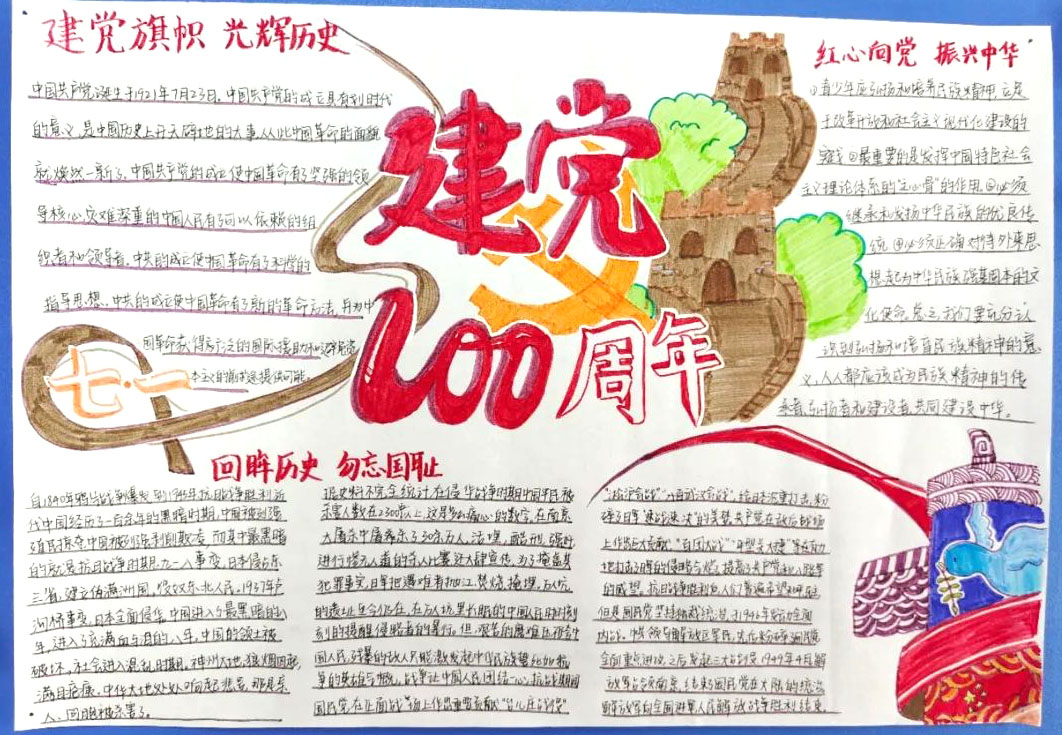 建党旗帜 光辉历史
中国共产党诞生于1921年7月23日,中国共产党的成立具有划时代
的意义,是中国历史上开天辟地的大事,从此中国革命的面貌
就焕然一新了。中国共产党的成立使中国革命有了坚强的领
导核心,灾难深重的中国人民有了可以依赖的组
织者和领导者。中共的成立使中国革命有了科学的
指导思想。中共的成立使中国革命有了新的革命方法,并为中
国革命获得了广泛的国际援助和避免资
本主义的前途提供可能。
七·一
建党
100周年
红心向党 振兴中华
①青少年应弘扬和培养民族精神,立足
于改革开放和社会主义现代化建设的
实践②最重要的是发挥中国特色社会
主义理论体系的"主心骨"的作用。③必须
继承和发扬中华民族的优良传
统 ④必须正确对待外来思
想,起为中华民族强基固本的文
化使命。总之,我们要充分认
识到弘扬和培育民族精神的意
义,人人都应该成为民族精神的传
承者、弘扬者和建设者,共同建设中华。
回眸历史 勿忘国耻
自1840年鸦片战争爆发到1945年抗战战争胜利近
代中国经历了一百余年的黑暗时期,中国被列强
殖民掠夺中国被列强剥削欺凌,而其中最黑暗
的就是抗日战争时期。九一八事变,日本侵占东
三省,建立伪满洲国,奴役东北人民。1937年卢
沟桥事变,日本全面侵华,中国进入了最黑暗的
年,进入了充满血与泪的八年,中国的领土被
破坏,社会进入混乱时期。神州大地,狼烟四起,
满目疮痍,中华大地处处响起悲哀,那是亲
人、同胞被杀害了。
据史料不完全统计,在侵华战争时期中国平民被
杀害人数在2300以上,这是多么痛心的数字,在南京
大屠杀中屠杀了30余万人,活埋、酷刑、强奸
进行惨无人道的杀人比赛还大肆宣传,为了掩盖其
犯罪事实,日军把遇难者抛江、焚烧、掩埋,万人坑
的遗址至今仍在,在万人坑里长眠的中国人民时时刻
刻的提醒侵略者的暴行。但,艰苦的磨难压不倒中
国人民,残暴的敌人只能激发起中华民族誓死如归抗
争的英雄与气概,战争让中国人民团结一心,抗战期间
国民党在正面战场上作出重要贡献"台儿庄战役"
"淞沪会战""武汉会战",给日本沉重打击,粉
碎了日军"速战速决"的美梦。共产党在敌后战场
上作出巨大贡献,"百团大战""平型关大捷"等有力
地打击了日军的侵略气焰,提高了共产党和八路军
的威望。抗日战争胜利后,人们普遍希望和平
但是国民党坚持独裁统治,于1946年发动全面
内战。中共领导解放区军民,先后粉碎国民党
全面重点进攻,之后发起三大战役,1949年4月解
放军占领南京,结束了国民党在大陆的统治
解放军向全国进军人民解放战争胜利结束